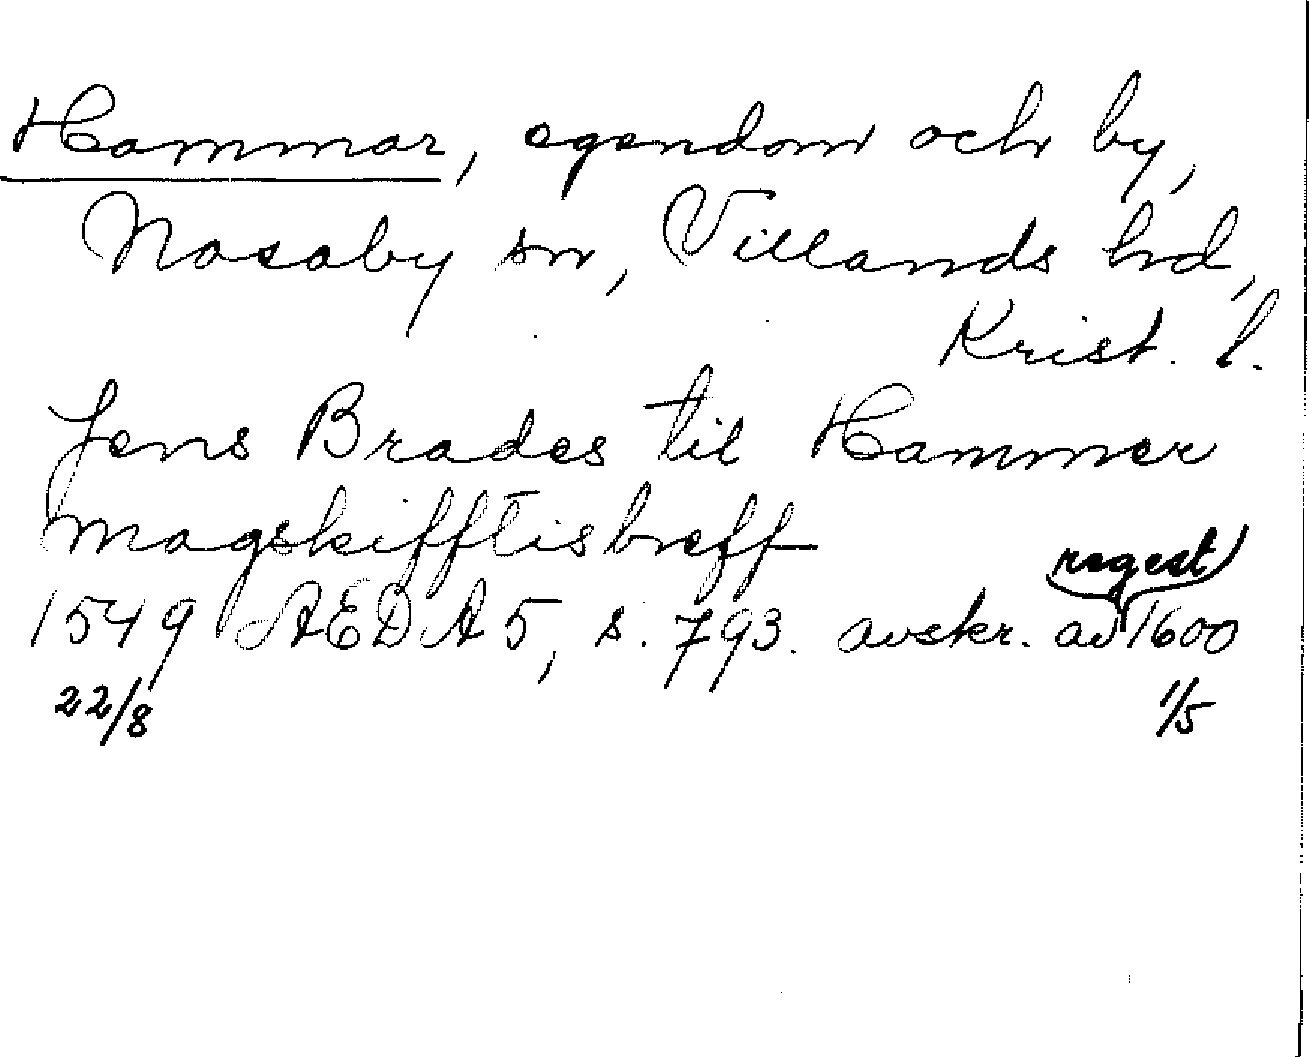 Hammar, egendom och by,
Nosaby sn, Villands hd,
Krist. l.
Jens Brades til Hammer
magskifftisbreff
1549 AEDA 5, s. 793. avskr. av regest 1600
22/8 1/5